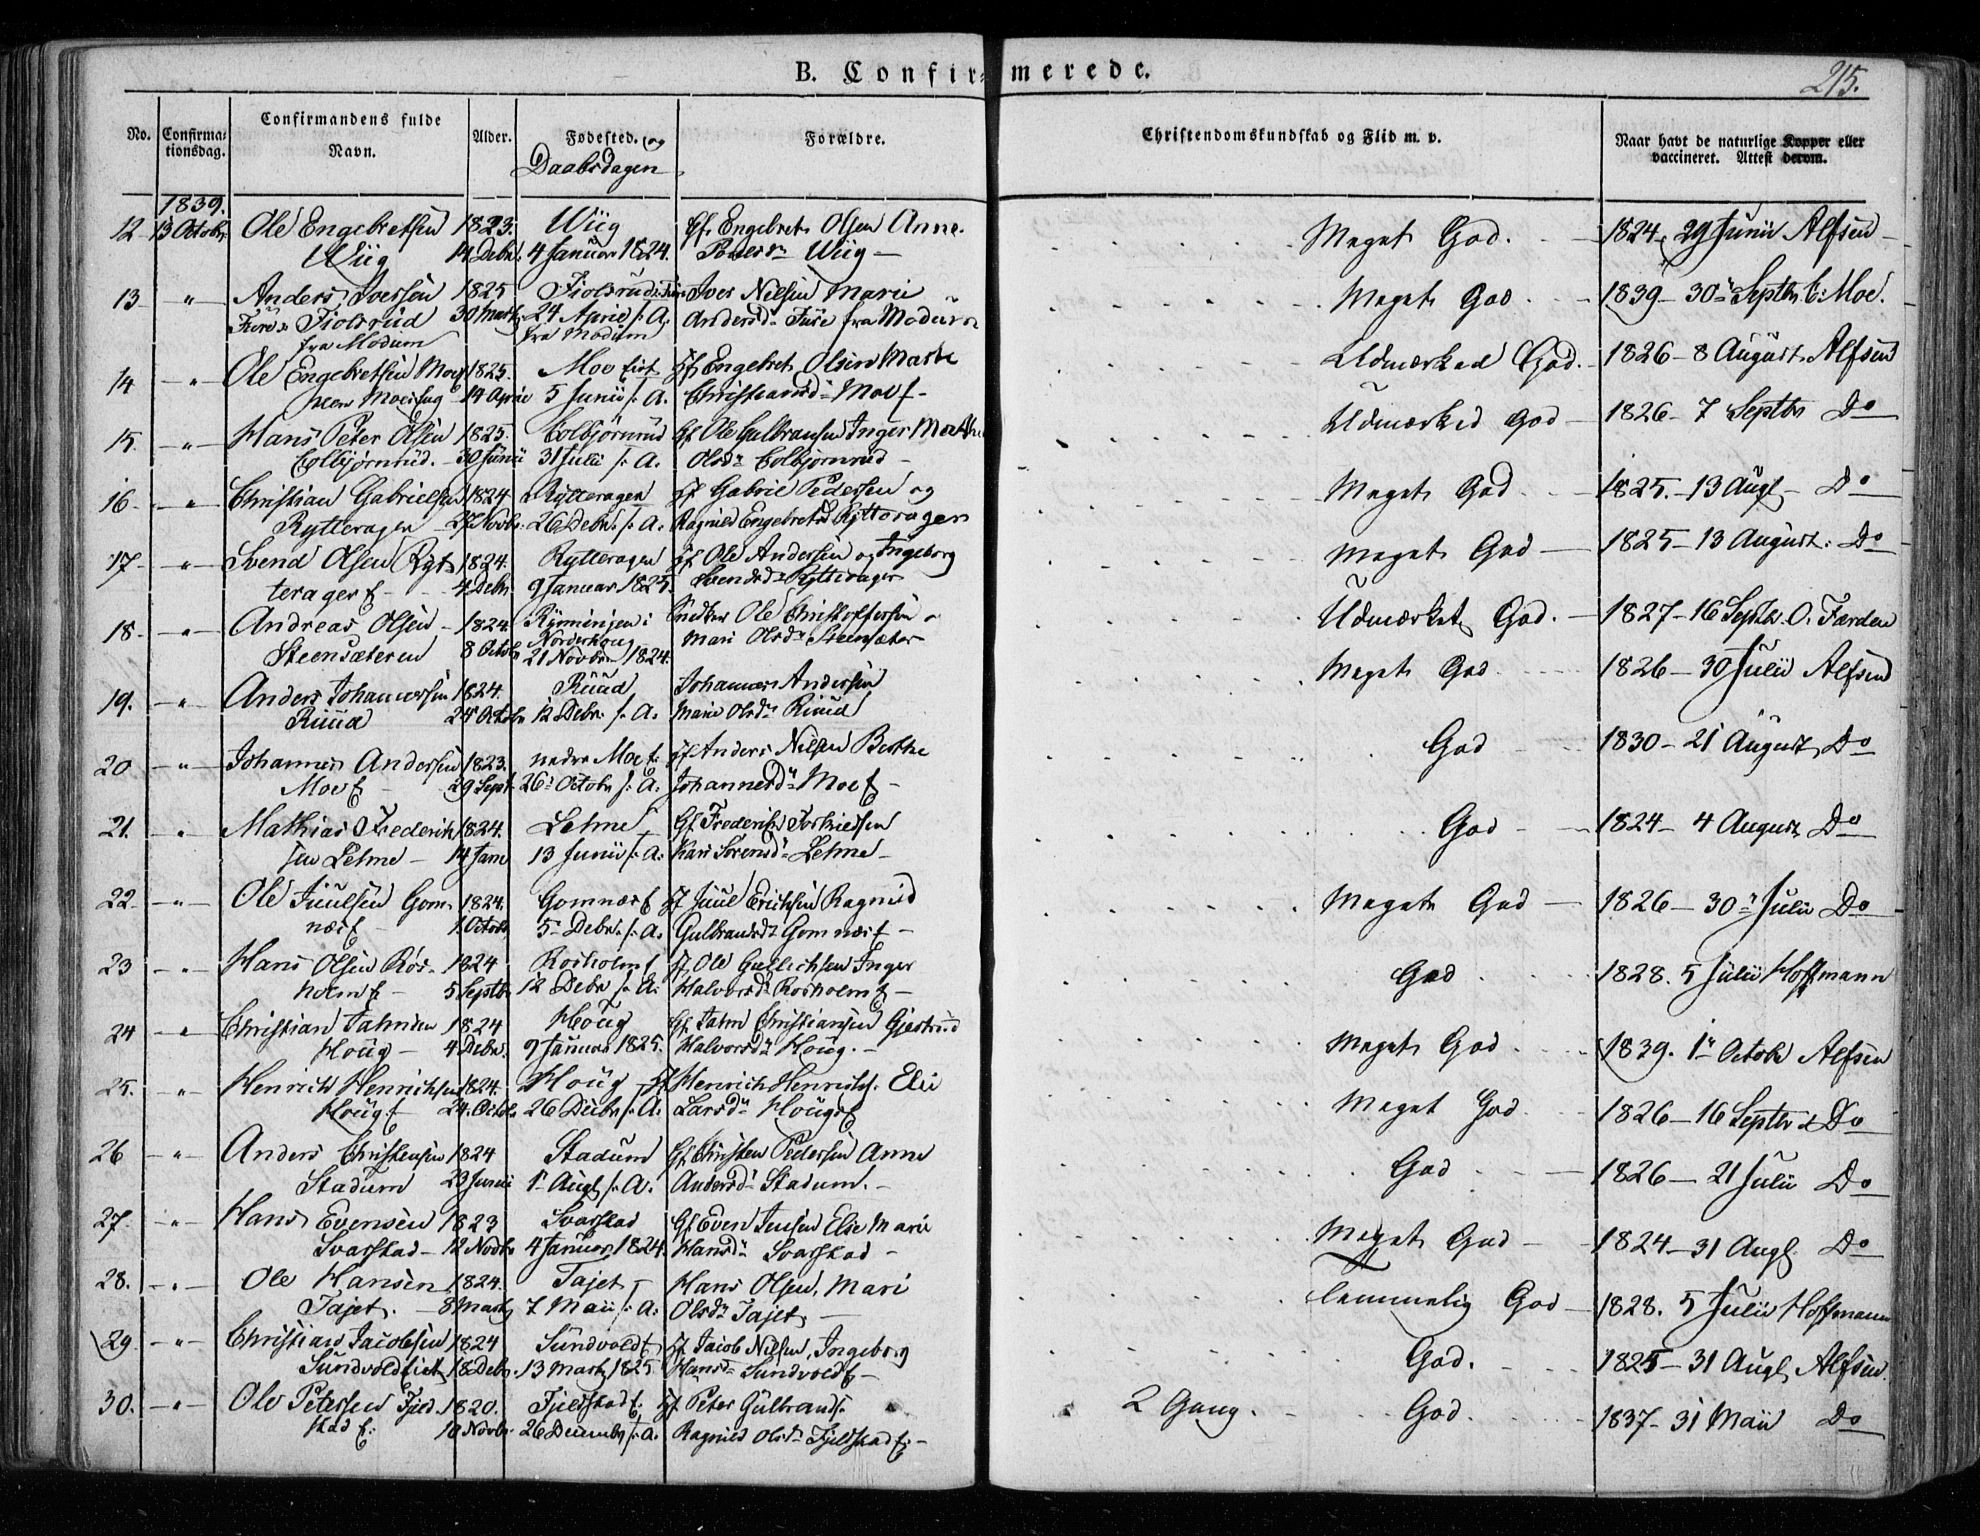 B. Confirmerede.
215.
No. Confirmationsdag. Confirmandens fulde Navn. Alder. Fødested. og Daabsdagen Forældre. Christendomskundskab og Flid m. v. Naar havt de naturlige Kopper eller vaccineret. Attest derom.
1839.
12 13 Octobr Ole Engebretsen 1823. Wiig Gf. Engebret Olsen Anne Meget God. 1824, 29 Junii Alfsen
Wiig 14 Debr. 4 Januar 1824. Wiig
13 " Anders Iversen 1825 Fiolsrud Iver Nilsen Marie Meget God 1839 30 Septbr C. Moe.
Fure Fiolsrud 30 Marts 24 April s. A. Andersdr Fure fra Modum
fra Modum fra Modum
14 " Ole Engebretsen Moe 1825. Moe Hf Engebret Olsen Marthe Udmærked God. 1826 - 8 August Alfsen
14 April 5 Junii s. A. Christiansdr Moe
15. " Hans Peter Olsen 1825. Colbjørnrud Gf Ole Gulbransen Inger Marthe Udmærked God 1826 - 7 Septbr Do
Colbjørnrud. 30 Junii 31 Julii s. A. Olsdr Colbjørnrud
16 " Christian Gabrielsen 1824 Rytterager Hf Gabriel Pedersen og Meget God 1825. - 13 Augt Do
Rytterager 27 Novbr. 26 Debr. s. A. Ragnild Engebretsd Rytterager
17 " Svend Olsen Ryt- 1824. Rytterager Hf Ole Andersen og Ingeborg Meget God 1825 - 13 August. Do
terager E 4 Debr. 9 Januar 1825 Svendsdr Rytterager
18. " Andreas Olsen 1824. i Ole Christoffersen Udmærket God. 1827 - 16 Septbr. O. Færden
Steensæteren 8 Octobr Norderhoug Mari Olsdr Steensæter
21 Novbr 1824.
19. " Anders Johannessen 1824. Ruud Johannes Andersen Meget God 1826 - 30 Julii Alfsen
Ruud 24 Octobr 12 Debr. s. A. Marie Olsdr Ruud
20 " Johannes Andersen 1823. nedre Moe E Hf Anders Nilsen Berthe God 1830 - 21 August Do
Moe E 29 Sept. 26 Octobr s. A. Johannesdr Moe E
21. " Mathias Frederik- 1824. Lehne Gf Frederik God 1824 - 4 August Do
sen Lehne 14 13 Junii s. A. Kari Sørensdr Lehne
22 " Ole Juulsen Gom- 1824. Gomnæs E Hf Juul Erichsen Ragnild Meget God 1826 - 30 Julii Do
næs E 1 Octobr 5 Debr. s. A. Gulbrandsdr Gomnæs E
23 " Hans Olsen Ros- 1824 Rosholm E Hf Ole Gullichsen Inger God 1828. 5 Julii Hoffmann
holm E 5 Septbr 12 Debr s. A. Halvorsdr Rosholm E
24 " Christian 1824 Houg Gf Christiansen Meget God 1839. 1 Octobr Alfsen
Houg 4 Debr. 9 Januar 1825. Halvorsdr Houg.
25. " Henrich Henrichsen 1824. Houg Hf Henrich Henrichs. Elie Meget God 1826 - 16 Septbr Do
Houg E 24. Octbr 26 Decbr s. A. Larsdr Houg E
26 " Anders Christensen 1824 Stadum Gf Christen Pedersen Anne God 1826 - 21 Julii Do
Stadum 29 Junii 1 Augt s. A. Andersdr Stadum.
27. " Hans Evensen 1823 Svarstad Gf Even Jensen Elie Marie Meget God 1824 - 31 Augt. Do
Svarstad 12 Novbr 4 Januar 1824. Hansdr Svarstad
28. " Ole Hansen 1824. Tajet Hans Olsen, Mari Temmelig God 1828. 5 Julii Hoffmann
Tajet. 8 Marts 7 Maii s. A. Olsdr Tajet
29 " Christian Jacobsen 1824 Sundvold E Hf Jacob Nilsen, Ingeborg God. 1825 - 31 Augt Alfsen
Sundvold 18 Debr. 13 Marts 1825 Hansdr Sundvold E
30. " Ole Petersen Fjeld- 1820. Fjeldstad E. Hf Peter Gulbrands. 2 Gang. God. 1837 - 31 Maii Do
stad E. 10 Novbr. 26 Decembr s. A. Ragnild Olsdr Fjeldstad E.